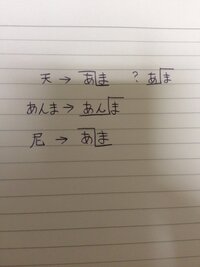 天 → あま ? あま
あんま → あんま
尼 → あま